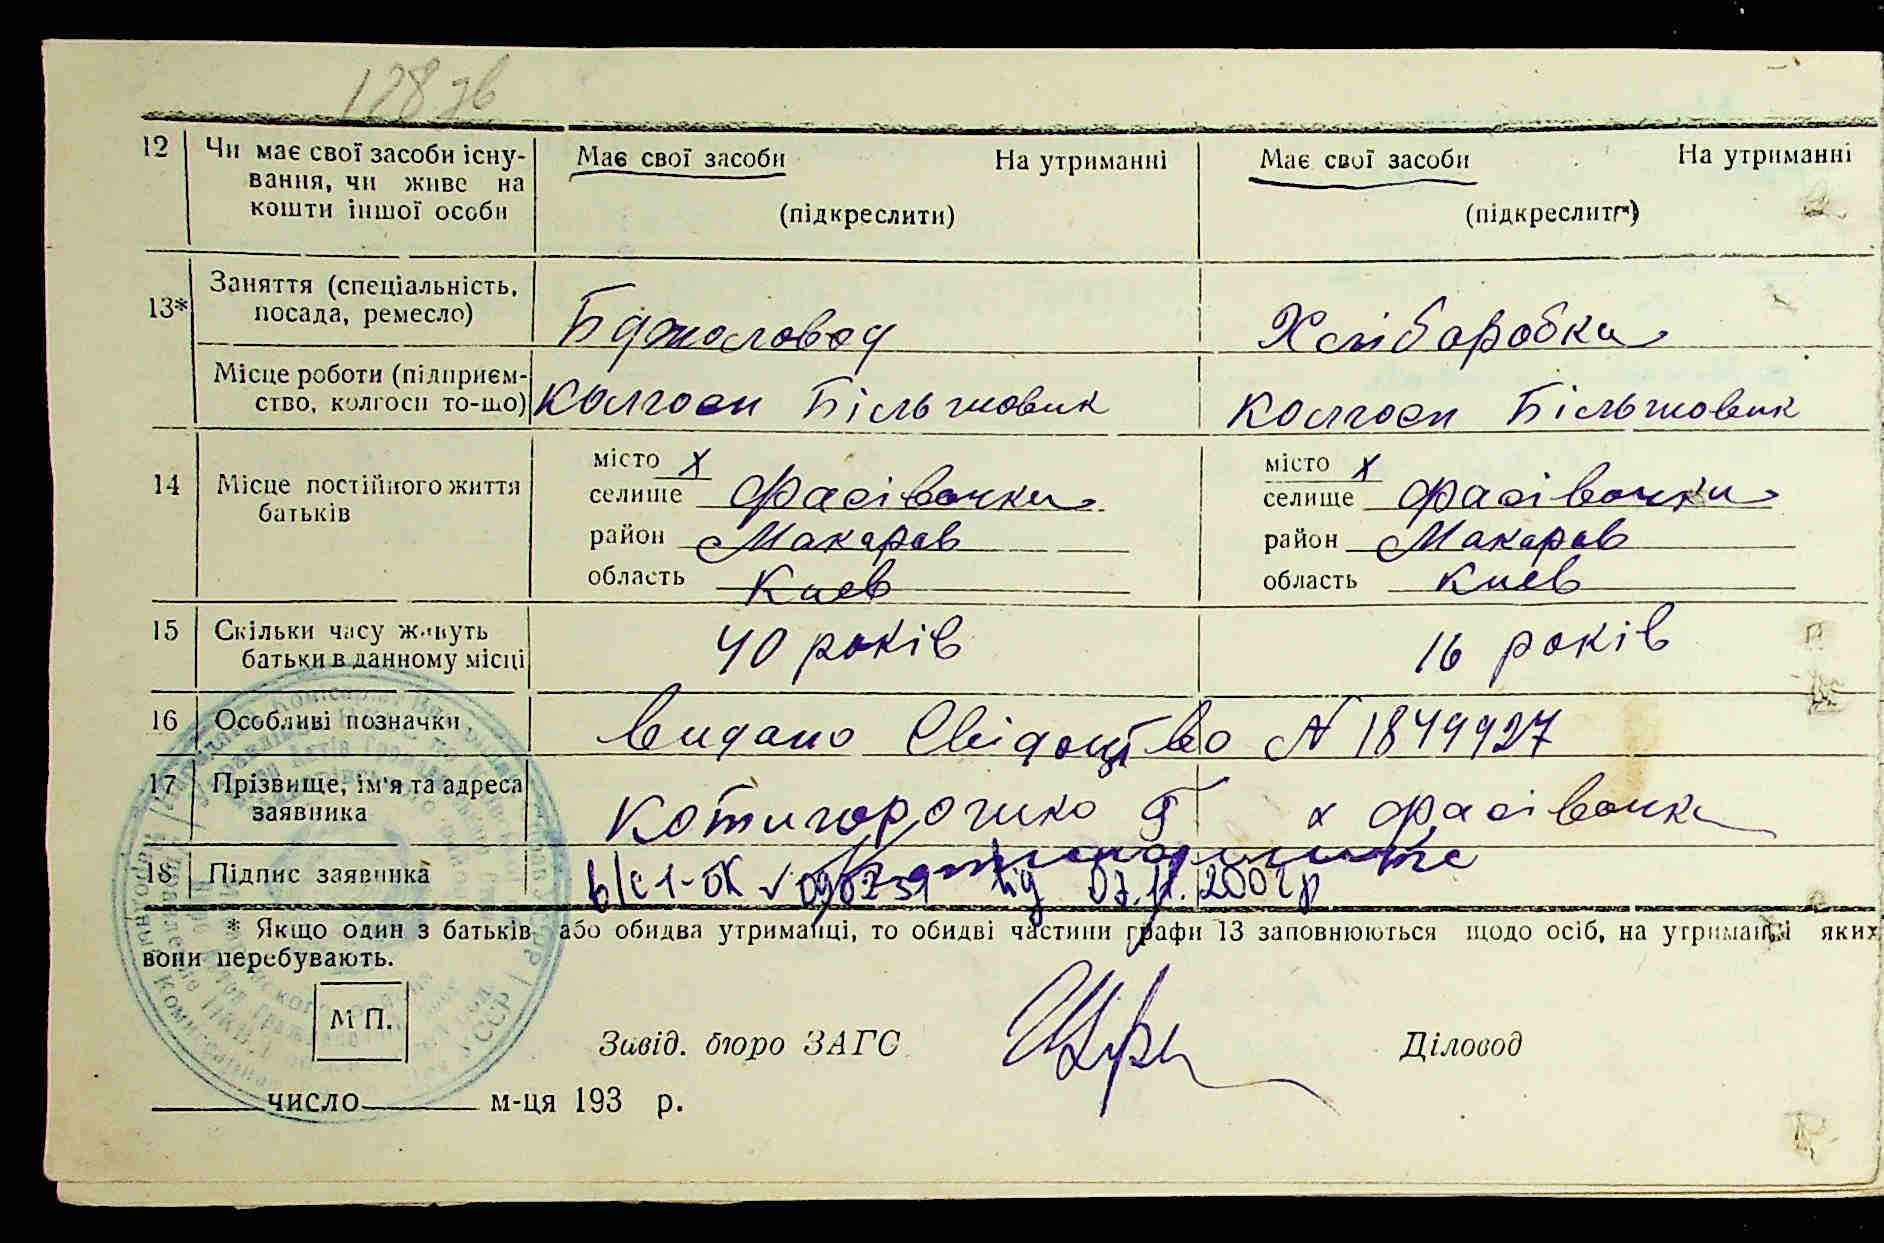 128 зв
12 Чи має свої засоби існу- Має свої засоби На утриманні Має свої засоби На утриманні
вання, чи живе на
кошти іншої особи (підкреслити) (підкреслити)
13* Заняття (спеціальність,
посада, ремесло) Бджоловод Хлібаробка
Місце роботи (підприєм-
ство, колгосп то-що) Колгосп Більшовик Колгосп Більшовик
місто х місто х
14 Місце постійного життя селище Фасівочка селище Фасівочка
батьків район Макаров район Макаров
область Киев область Киев
15 Скільки часу живуть 40 років 16 років
батьки в данному місці
16 Особливі позначки видано Свідоцтво N 1849927
17 Прізвище, ім'я та адреса
заявника Котигорошко Г х Фасівочка
18 Підпис заявника
від 07.11.2001р
* Якщо один з батьків або обидва утриманці, то обидві частини графи 13 заповнюються щодо осіб, на утриманні яких
вони перебувають.
М П.
Завід. бюро ЗАГС Діловод
число м-ця 193 р.